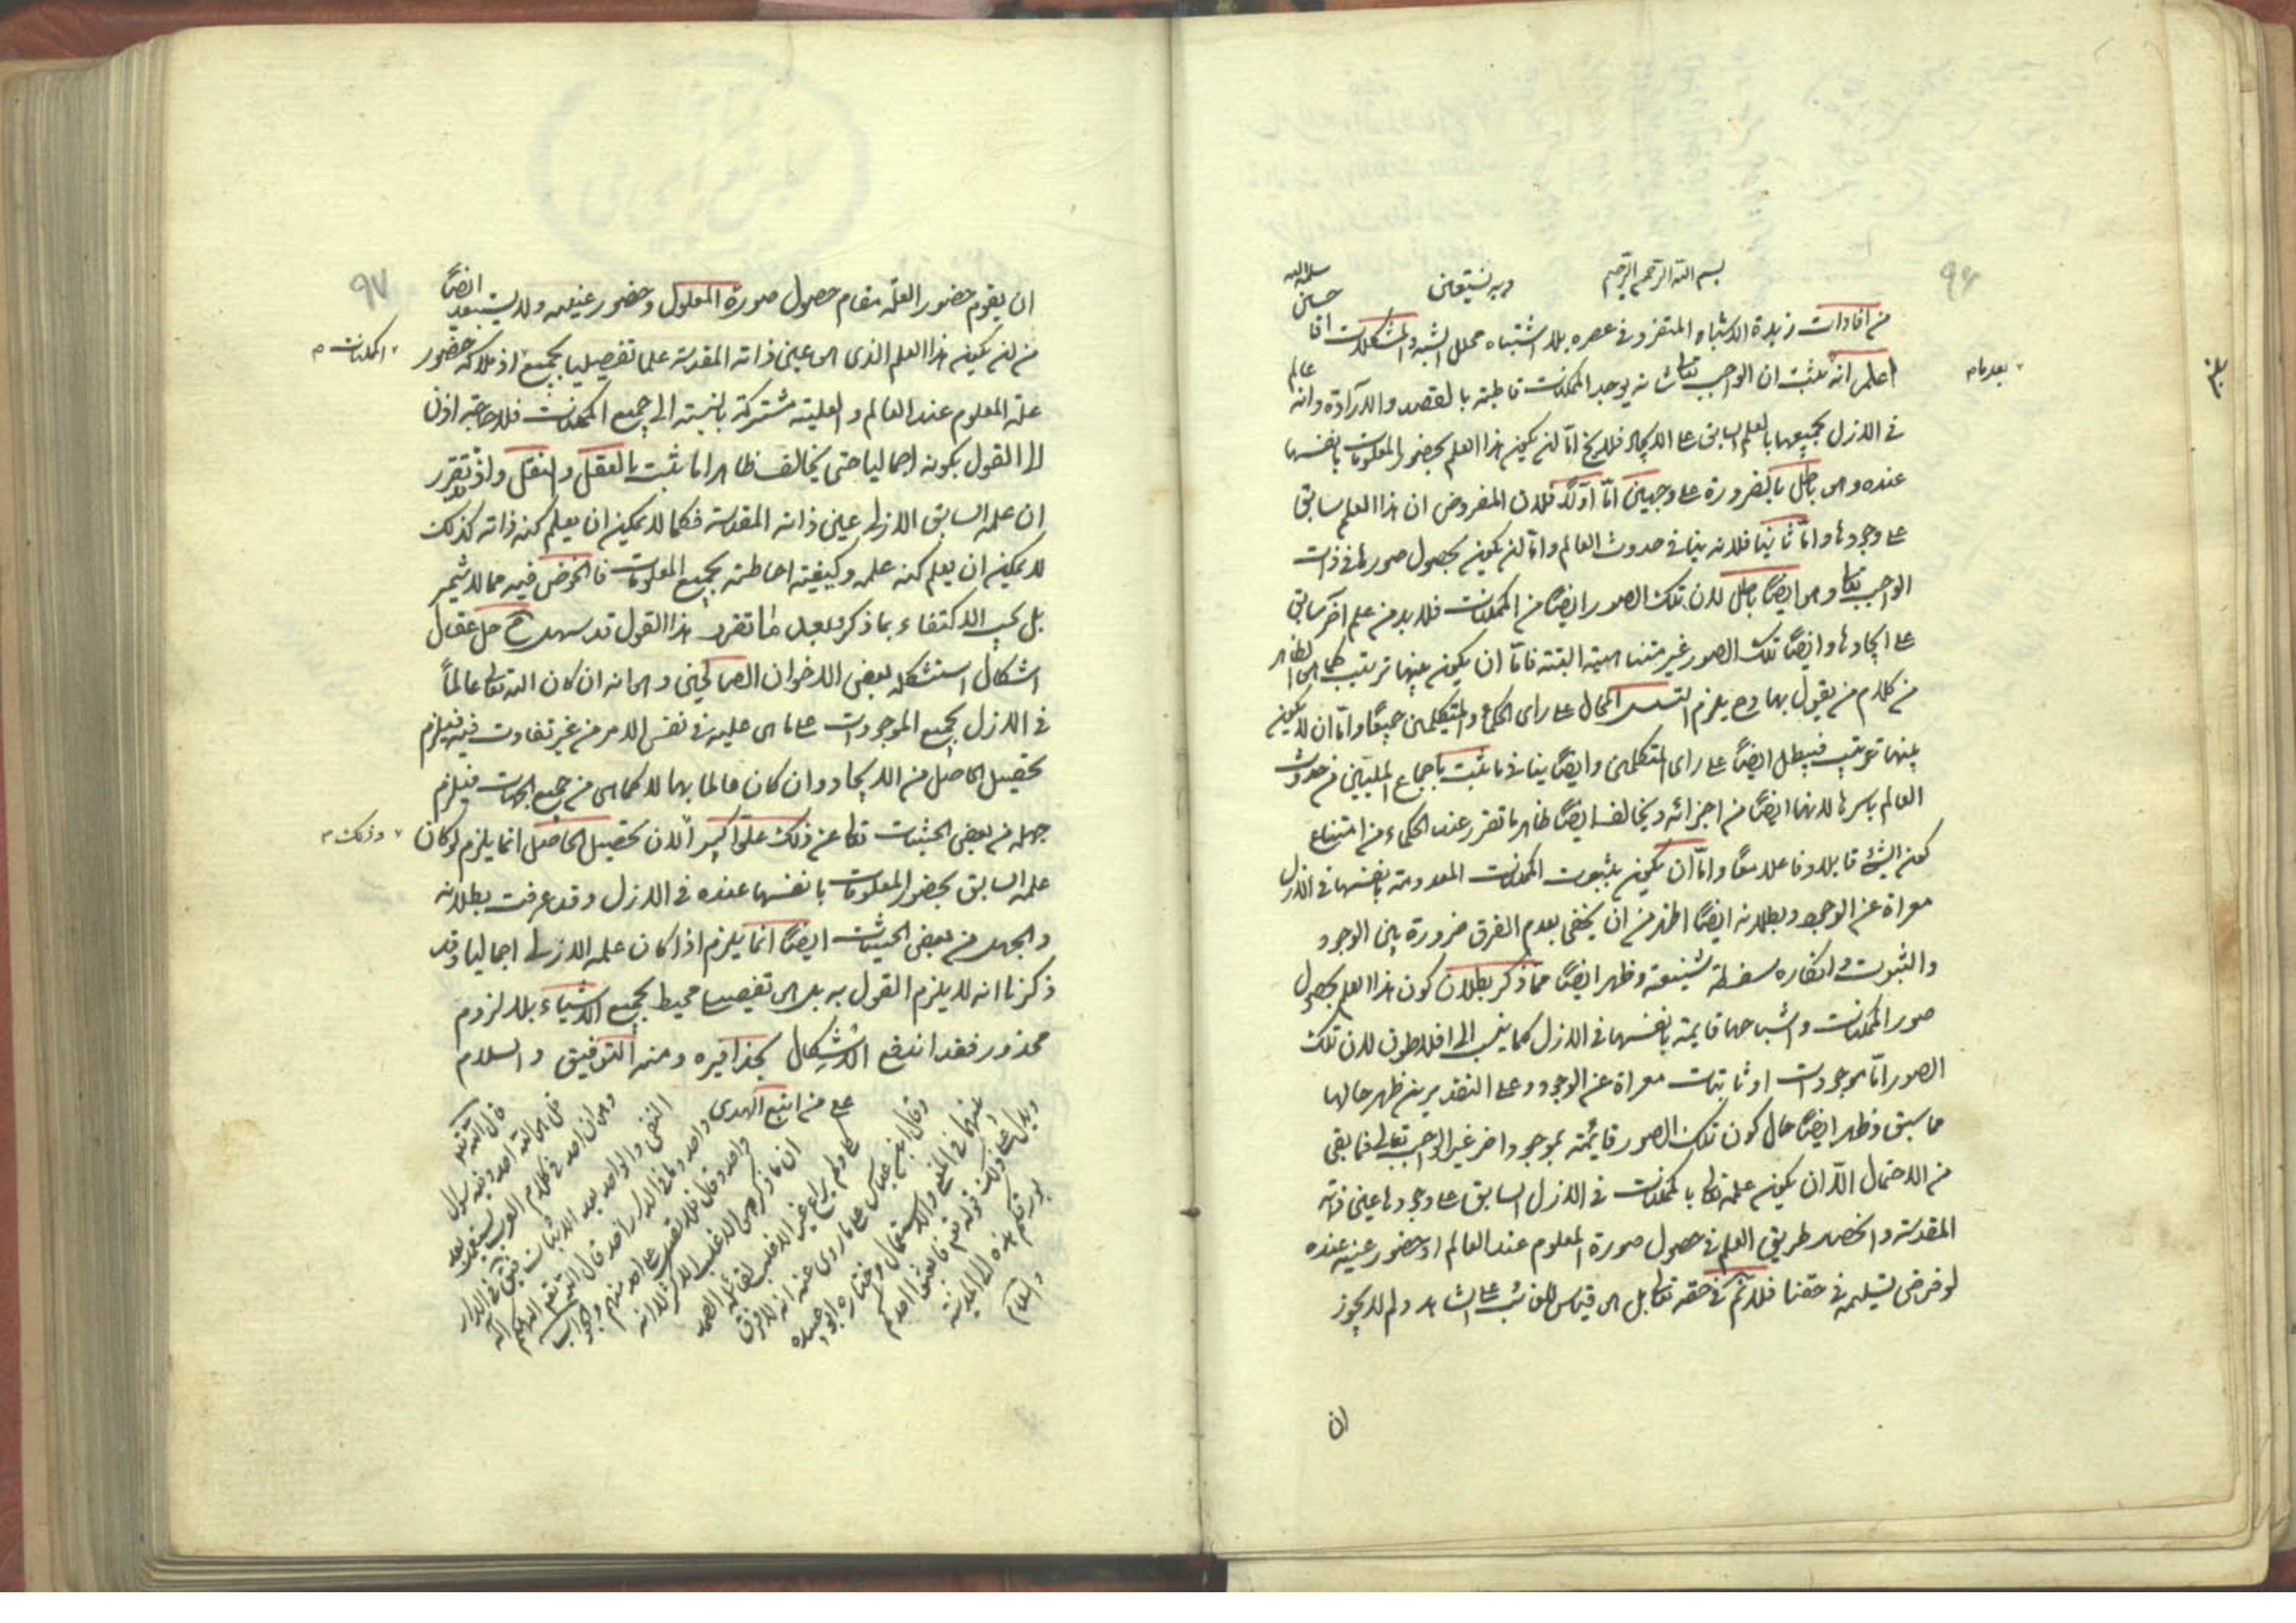 ٩٦
بسم الله الرحمن الرحيم وبه نستعين
من افادات زبدة الاشباه المتفرد في عصره بلا اشتباه محلل الشبه والمشكلات اقا حسين سلمه الله
اعلم انه ثبت ان الواجب تعالى شانه يوجد الممكنات قاطبة بالقصد والارادة وانه عالم
بعدمام
في الازل بجميعها بالعلم السابق على الايجاد فلا يخ اما ان يكون هذا العلم بحضور المعلومات بانفسها
عنده وهو باطل بالضرورة على وجهين اما اولا فلان المفروض ان هذا العلم سابق
على وجودها واما ثانيا فلانه ينافي حدوث العالم واما ان يكون بحصول صورها في ذات
الواجب تعالى وهو ايضا باطل لان تلك الصور ايضا من الممكنات فلا بد من علم آخر سابق
على ايجادها وايضا تلك الصور غير متناهية البتة فاما ان يكون بينها ترتيب كما هو الظاهر
من كلام من يقول بها وح يلزم التسلسل المحال على راى الحكماء والمتكلمين جميعا واما ان لا يكون
بينها ترتيب فيبطل ايضا على راى المتكلمين وايضا ينافي ما ثبت باجماع المليين من حدوث
العالم باسرها لانها ايضا من اجزائه ويخالف ايضا ظاهر ما تقرر عند الحكماء من امتناع
كون الشئ قابلا وفاعلا معا واما ان يكون بثبوت الممكنات المعدومة بانفسها في الازل
معراة عن الوجود وبطلانه ايضا اظهر من ان يخفى بعدم الفرق ضرورة بين الوجود
والثبوت وانكاره سفسطة شنيعة وظهر ايضا مما ذكر بطلان كون هذا العلم بحصول
صور الممكنات واشباحها قايمة بانفسها في الازل كما ينسب الى افلاطون لان تلك
الصور اما موجودات او ثابتات معراة عن الوجود وعلى التقديرين ظهر حالها
مما سبق وظهر ايضا حال كون تلك الصور قائمة بموجود اخر غير الواجب تعالى فما بقى
من الاحتمال الا ان يكون علمه تعالى بالممكنات في الازل السابق على وجودها عين ذاته
المقدسة وانحصار طريق العلم في حصول صورة المعلوم عند العالم او حضور عينه عنده
لو فرض تسليمه في حقنا فلا نم في حقه تعالى بل هو قياس للغائب على الشاهد ولم لا يجوز
ان
٩٧
ان يقوم حضور العلة مقام حصول صورة المعلول وحضور عينه ولا يستبعد ايضا
من ان يكون هذا العلم الذى هو عين ذاته المقدسة علما تفصيليا بجميع الممكنات اذ ملاكه حضور
علة المعلوم عند العالم والعلية مشتركة بالنسبة الى جميع الممكنات فلا حاجة اذن
الى القول بكونه اجماليا حتى يخالف ظاهرا ما ثبت بالعقل والنقل واذ تقرر
ان علمه السابق الازلي عين ذاته المقدسة فكما لا يمكن ان يعلم كنه ذاته كذلك
لا يمكن ان يعلم كنه علمه وكيفية احاطته بجميع المعلومات فالخوض فيه مما لا يثمر
بل يجب الاكتفاء بما ذكر وبعد ما تقرر هذا القول قد سهل ح حل عقال
اشكال استشكله بعض الاخوان الصالحين وهو انه ان كان الله تعالى عالما
في الازل بجميع الموجودات على ما هو عليه في نفس الامر من غير تفاوت فيه فيلزم
تحصيل الحاصل من الايجاد وان كان عالما بها لا كما هو من جميع الجهات فيلزم
جهله من بعض الحيثيات تعالى عن ذلك علوا كبيرا وذلك لان تحصيل الحاصل انما يلزم لو كان
علمه السابق بحضور المعلومات بانفسها عنده في الازل وقد عرفت بطلانه
والجهل من بعض الحيثيات ايضا انما يلزم اذا كان علمه الازلي اجماليا وقد
ذكرنا انه لا يلزم القول به بل هو تفصيلي محيط بجميع الاشياء بلا لزوم
محذور فقد اندفع الاشكال بحذافيره ومنه التوفيق والسلام
على من اتبع الهدى
قال الله تعالى
قل هو الله احد وفيه سؤال
وهو ان احد في كلام العرب يستعمل بعد
النفي والواحد بعد الاثبات
ان ما ذكر هو الاغلب
ويدل على ذلك قوله تعالى فابعثوا احدكم
بورقكم هذه الى المدينة
والسلام